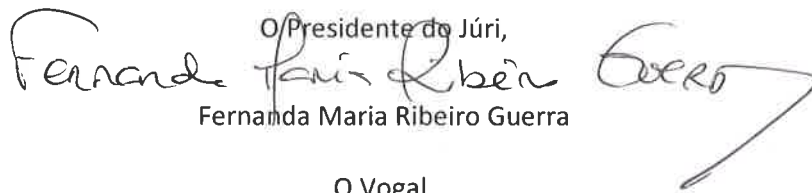 O Presidente do Júri,
Fernanda Maria Ribeiro Guerra
Fernanda Maria Ribeiro Guerra
O Vogal